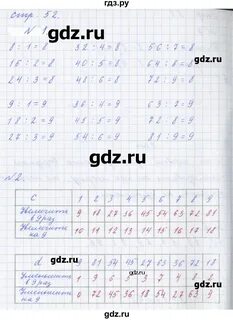 стр. 52.
gdz.ru
N 1
8 : 1 = 8 32 : 4 = 8 56 : 7 = 8
16 : 2 = 8 40 : 5 = 8 64 : 8 = 8
24 : 3 = 8 48 : 6 = 8 72 : 9 = 8
gdz.ru
9 : 1 = 9 36 : 4 = 9 63 : 7 = 9
18 : 2 = 9 45 : 5 = 9 72 : 8 = 9
27 : 3 = 9 54 : 6 = 9 81 : 9 = 9
gdz.ru
N 2.
c 1 2 3 4 5 6 7 8 9
Увеличить в 9 раз 9 18 27 36 45 54 63 72 81
Увеличить на 9 10 11 12 13 14 15 16 17 18
gdz.ru
d 9 81 54 45
Уменьшить в 9 раз 1 9 6 5 3 7 4 8 2
Уменьшить на 9 0 72 45 36 18 54 27 63 9
gdz.ru